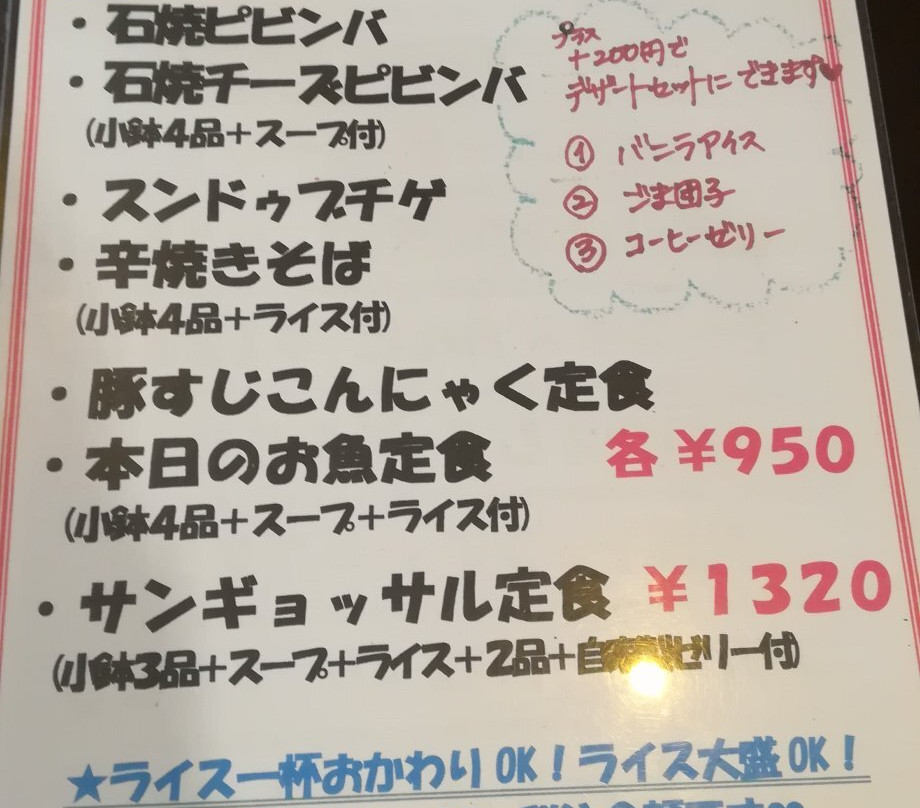 ・石焼ピビンバ
・石焼チーズピビンバ
(小鉢4品+スープ付)
プラス
+200円で
デザートセットにできます♥
① バニラアイス
② ごま団子
③ コーヒーゼリー
・スンドゥブチゲ
・辛焼きそば
(小鉢4品+ライス付)
・豚すじこんにゃく定食
・本日のお魚定食 各¥950
(小鉢4品+スープ+ライス付)
・サンギョッサル定食 ¥1320
(小鉢3品+スープ+ライス+2品+自家製ゼリー付)
★ライス一杯おかわりOK!ライス大盛OK!